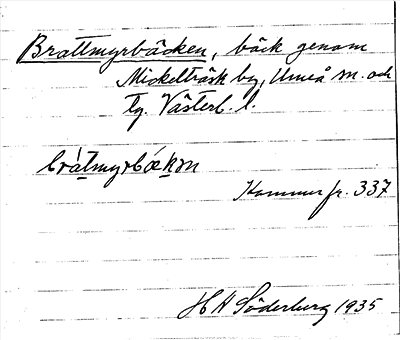 Brattmyrbäcken, bäck genom
Mickelträsk by, Umeå sn. och
tg. Västerb. l.
brátmyrbǽkɒn
Kammarfr. 337
H A Söderberg 1935